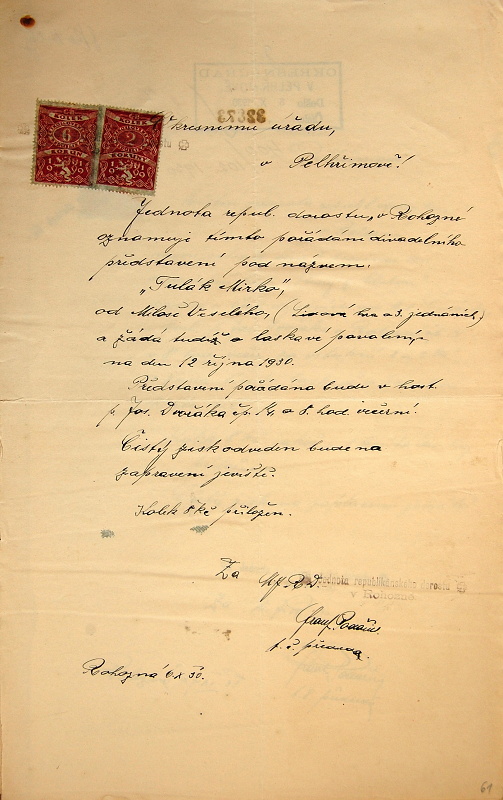 32673
KOLEK
6
KORUN
KOLEK
2
KORUNY
kresnímu úřadu,
v Pelhřimově!
Jednota repub. dorostu, v Rohozné
oznamuje tímto pořádání divadelního
představení pod názvem:
„Tulák Mirko",
od Miloše Veselého, (Lidová hra o 3. jednáních)
a žádá tudíž o laskavé povolení
na den 12 října 1930.
Představení pořádáno bude v host.
p. Jos. Dvořáka čp. 14, o 8. hod. večerní.
Čistý zisk odveden bude na
zapravení jeviště.
Kolek 8 kč přiložen.
Za R. D.
Jednota republikánského dorostu
v Rohozné
t. č. předseda.
Rohozná 6 X 30.
61